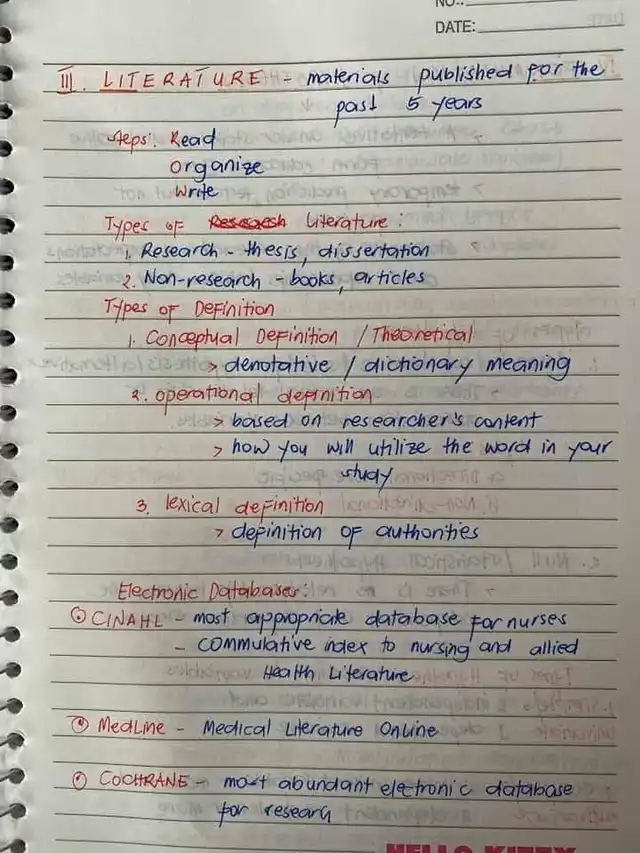 NO.:
DATE:
III. LITERATURE - materials published for the
past 5 years
steps: Read
Organize
Write
Types of Research Literature:
1. Research - thesis, dissertation
2. Non-research - books, articles
Types of Definition
1. Conceptual Definition / Theoretical
> denotative / dictionary meaning
2. operational definition
> based on researcher's content
> how you will utilize the word in your
study
3. lexical definition
> definition of authorities
Electronic Databases:
CINAHL - most appropriate database for nurses
- commulative index to nursing and allied
Health Literature
MedLine - Medical Literature Online
COCHRANE - most abundant eletronic database
for research
HELLO KITTY